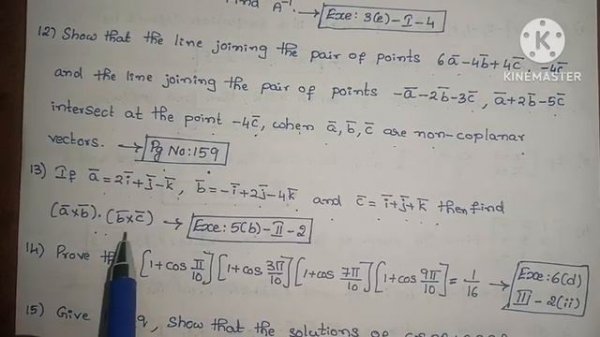 Find A⁻¹. → Exe: 3(e)-I-4
12) Show that the line joining the pair of points 6a̅-4b̅+4c̅, -4c̅
KINEMASTER
and the line joining the pair of points -a̅-2b̅-3c̅, a̅+2b̅-5c̅
intersect at the point -4c̅, when a̅, b̅, c̅ are non-coplanar
vectors. → Pg No: 159
13) If a̅ = 2i̅+j̅-k̅, b̅ = -i̅+2j̅-4k̅ and c̅ = i̅+j̅+k̅ then find
(a̅×b̅)·(b̅×c̅) → Exe: 5(b)-II-2
14) Prove [1+cos π/10][1+cos 3π/10][1+cos 7π/10][1+cos 9π/10] = 1/16 → Exe: 6(d)
III-2(ii)
15) Give q, show that the solutions of